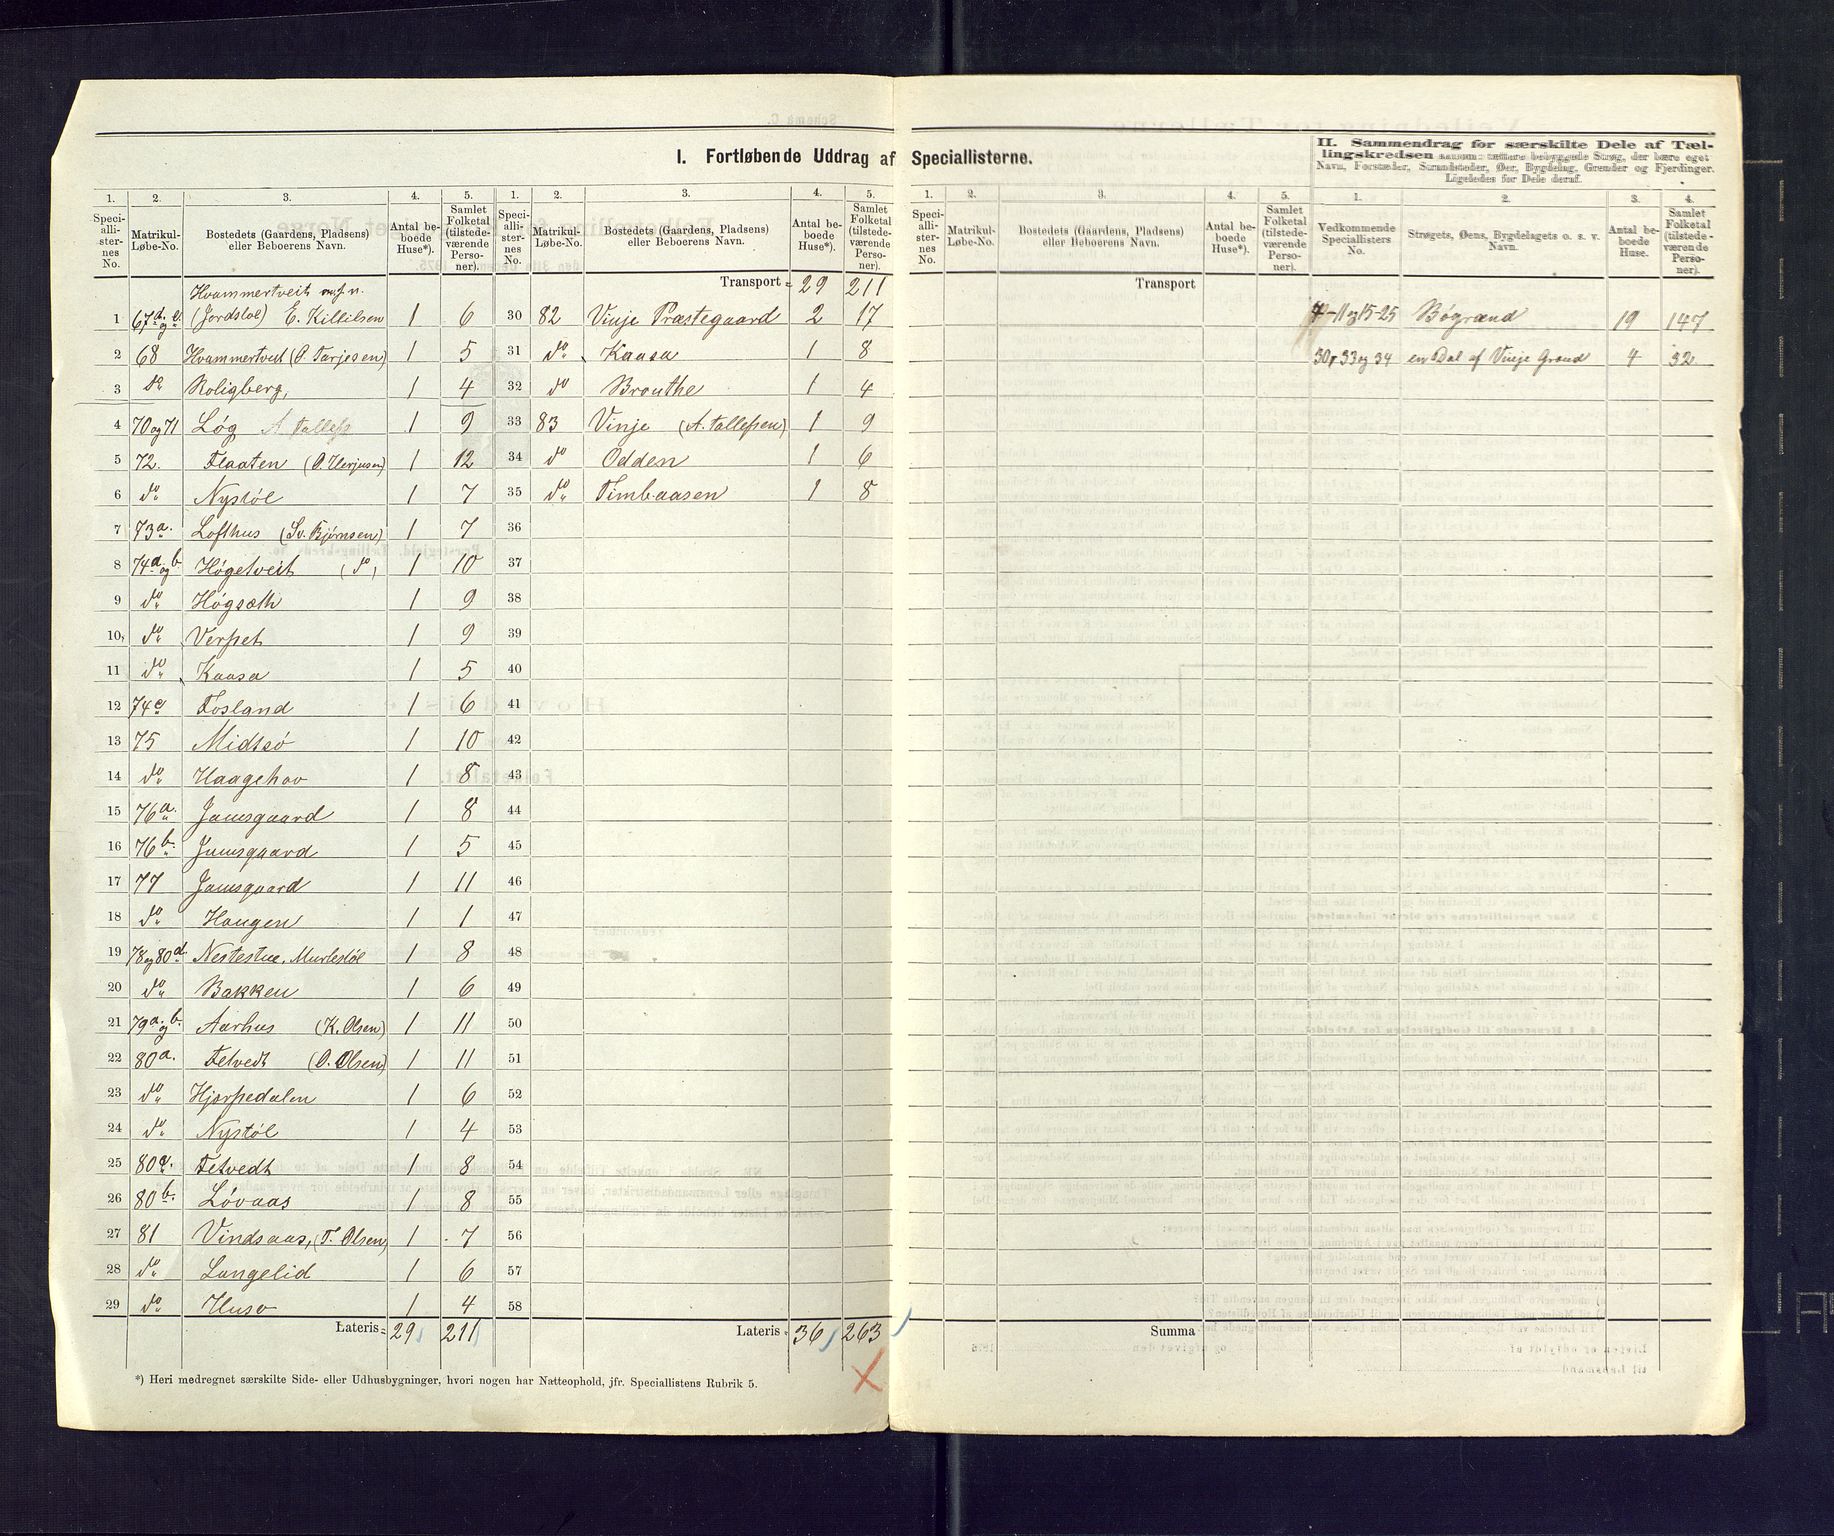 I. Fortløbende Uddrag af Speciallisterne.
II. Sammendrag for særskilte Dele af Tæl-
lingskredsen saasom: tættere bebyggede Strøg, der bære eget
Navn, Forstæder, Strandsteder, Øer, Bygdelag, Grender og Fjerdinger.
Ligeledes for Dele deraf.
1. 2. 3. 4. 5.
Speciallisternes No. Matrikul-Løbe-No. Bostedets (Gaardens, Pladsens) eller Beboerens Navn. Antal beboede Huse*). Samlet Folketal (tilstedeværende Personer).
Hvammertveit
1 67d og e (Jordsløl) E. Killilsen 1 6
2 68 Hvammertveit (O. Tarjesen) 1 5
3 do Roligberg, 1 4
4 70 og 71 Løg A Tallefs 1 9
5 72. Flaaten (O. Herjusen) 1 12
6 do Nystøl 1 7
7 73a. Lofthus (Sv. Bjørnsen) 1 7
8 74a og b. Høgetveit (do) 1 10
9 do Høgsæth 1 9
10, do Verpet 1 9
11 do Kaasa 1 5
12 74c Fosland 1 6
13 75 Midtsó 1 10
14 do Haagehov 1 8
15 76a. Jamsgaard 1 8
16 76b. Jamsgaard 1 5
17 77 Jamsgaard 1 11
18 do Haugen 1 1
19 78 og 80d. Nestestue, Murlestøl 1 8
20 do Bakken 1 6
21 79a. og b. Aarhus (K. Olsen) 1 11
22 80a. Fetvedt (O. Olsen) 1 11
23 do Hjerpedalen 1 6
24 do Nystøl 1 4
25 80c. Fetvedt 1 8
26 80b. Løvaas 1 8
27 81 Vindsaas, (T. Olsen) 1 7
28 do Langelid 1 6
29 do Huso 1 4
Lateris = 29 211
*) Heri medregnet særskilte Side- eller Udhusbygninger, hvori nogen har Natteophold, jfr. Speciallistens Rubrik 5.
1. 2. 3. 4. 5.
Speciallisternes No. Matrikul-Løbe-No. Bostedets (Gaardens, Pladsens) eller Beboerens Navn. Antal beboede Huse*). Samlet Folketal (tilstedeværende Personer).
Transport = 29 211
30 82 Vinje Præstegaard 2 17
31 do Kaasa 1 8
32 do Brouthe 1 4
33 83 Vinje (A. Tallefsen) 1 9
34 do Odden 1 6
35 do Timbaasen 1 8
36
37
38
39
40
41
42
43
44
45
46
47
48
49
50
51
52
53
54
55
56
57
58
Lateris = 36 263
1. 2. 3. 4. 5.
Speciallisternes No. Matrikul-Løbe-No. Bostedets (Gaardens, Pladsens) eller Beboerens Navn. Antal beboede Huse*). Samlet Folketal (tilstedeværende Personer).
Transport
Summa
1. 2. 3. 4.
Vedkommende Speciallisters No. Strøgets, Øens, Bygdelagets o. s. v. Navn. Antal beboede Huse. Samlet Folketal (tilstedeværende Personer).
-11 og 15-25 Bøgrænd 19 147
30, 33 og 34 en Del af Vinje Grænd 4 32